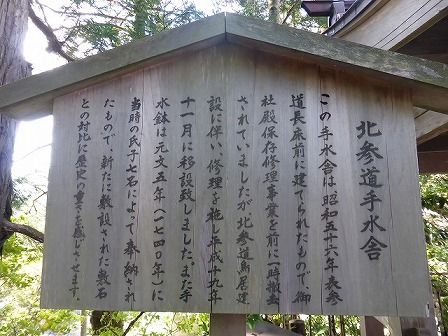 北参道手水舎
この手水舎は、昭和五十六年表参
道長床前に建てられたもので、御
社殿保存修理事業を前に一時撤去
されていましたが北参道鳥居建
設に伴い、修理を施し平成十九年
十一月に移設致しました。また手
水鉢は元文五年（一七四〇年）に
当時の氏子七名によって奉納され
たもので、新たに敷設された敷石
との対比に歴史の重さを感じさせます。